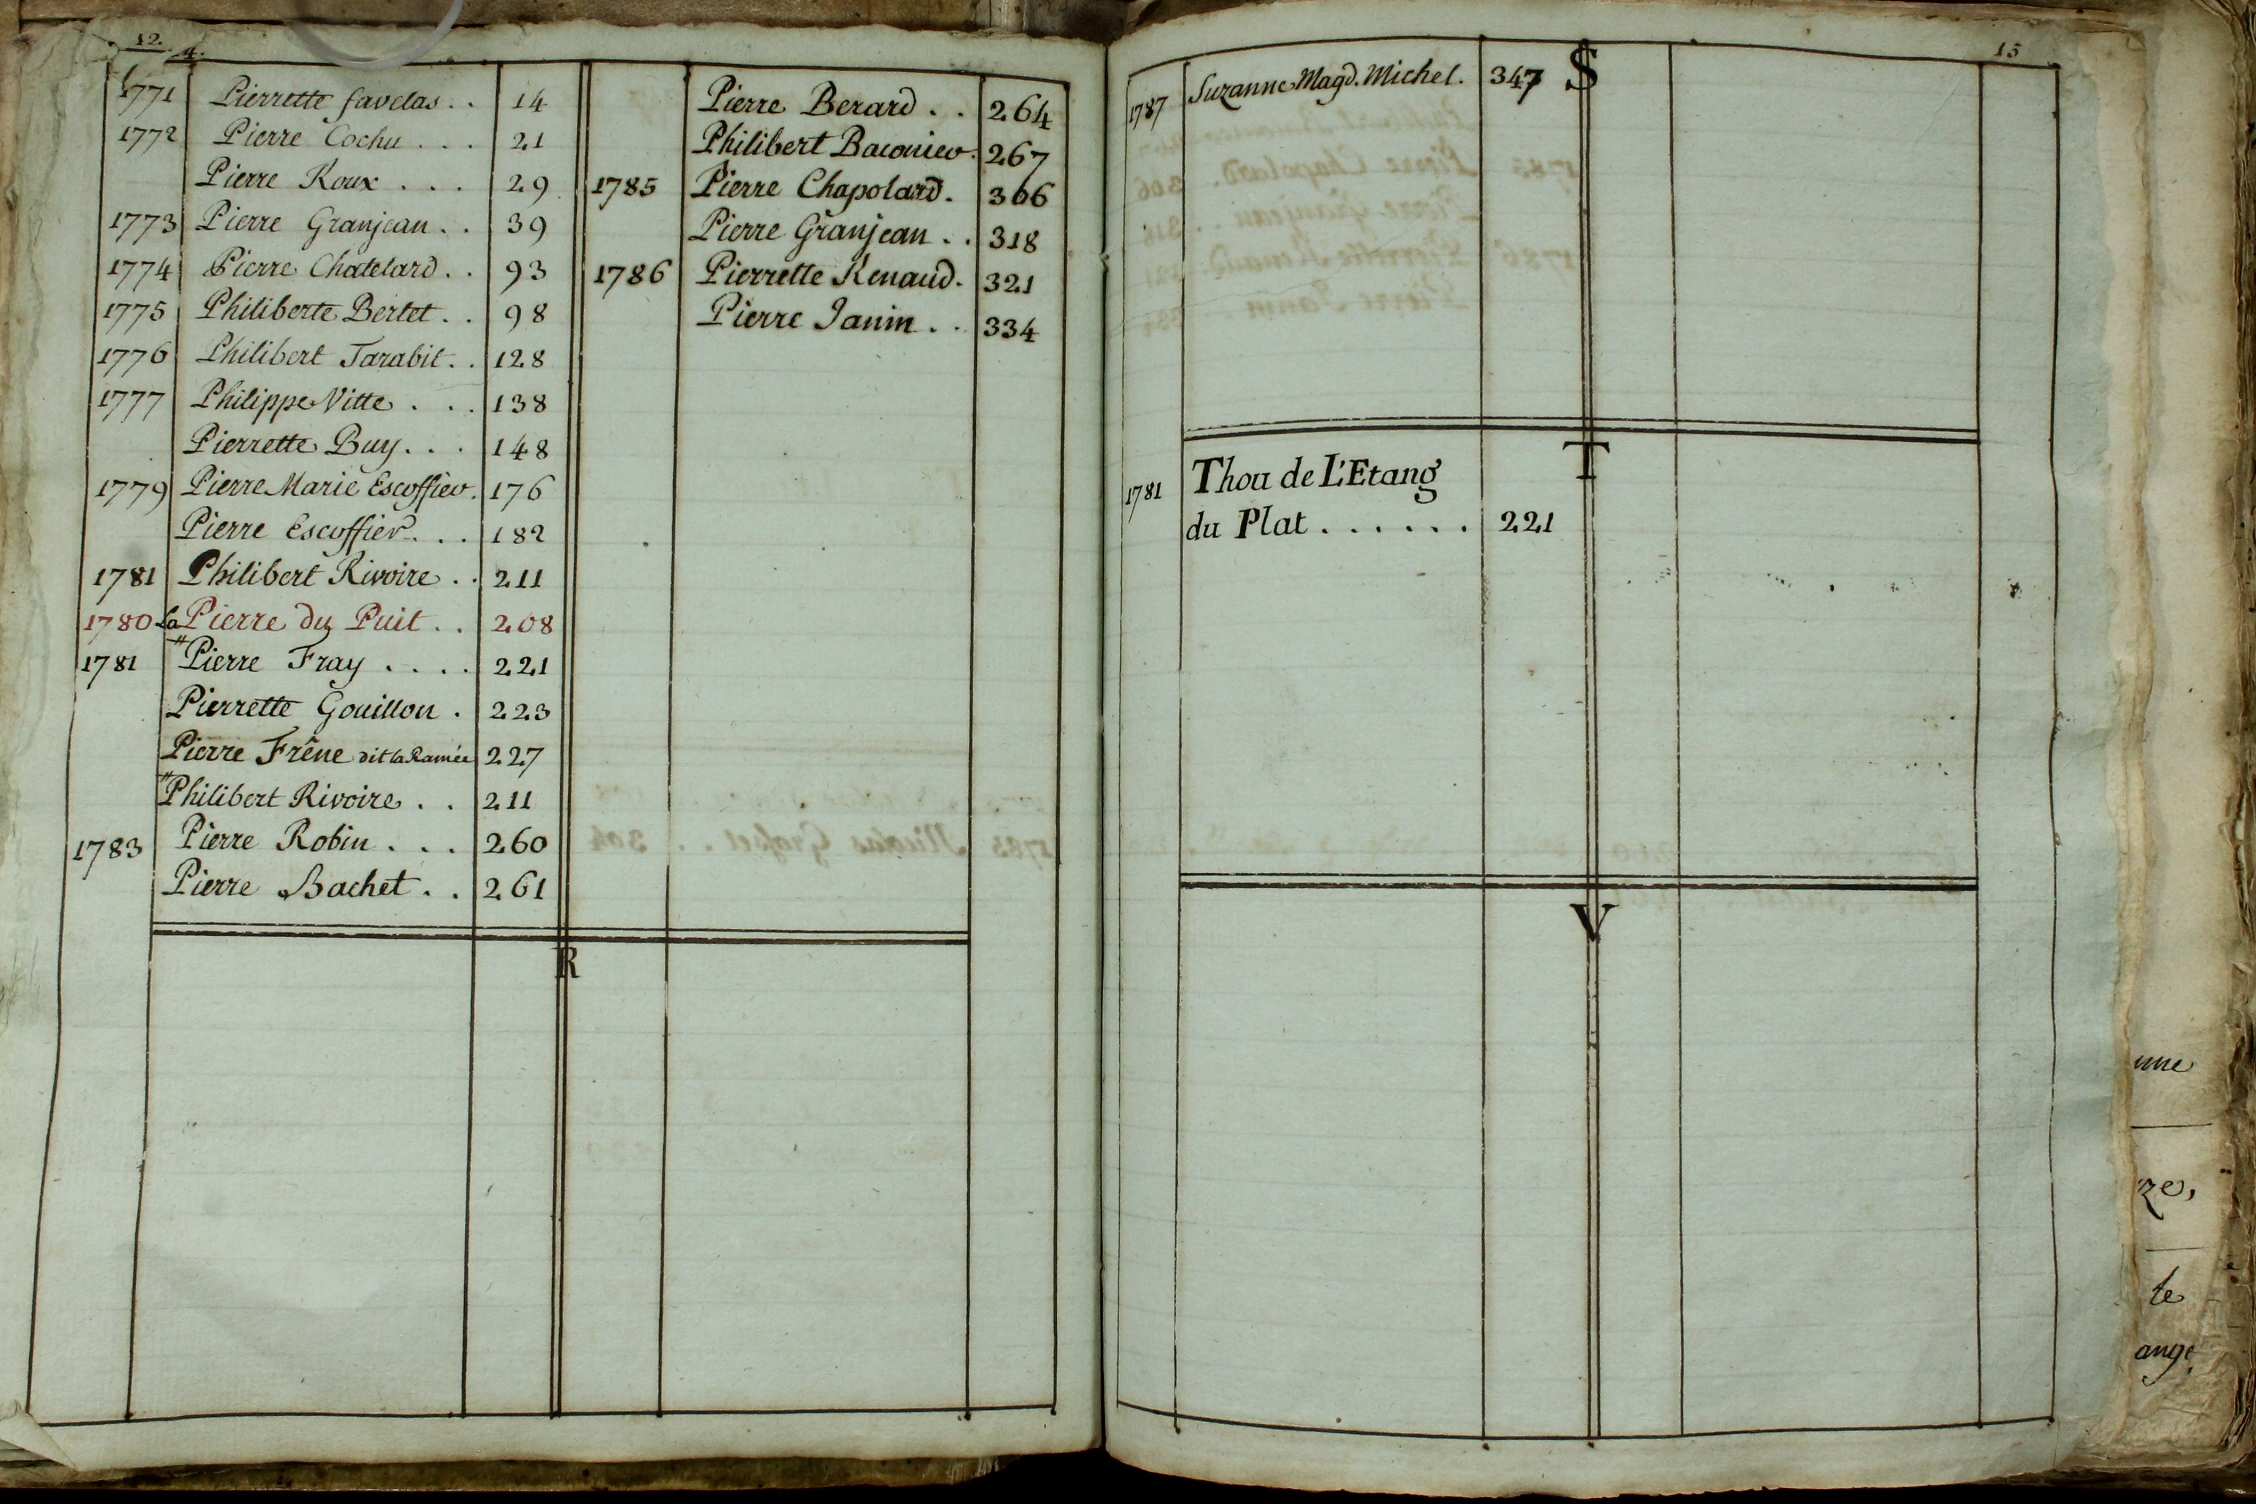 12.
1771 Pierrette favelas . . 14
1772 Pierre Cochu . . . 21
Pierre Roux . . . 29
1773 Pierre Granjean . . 39
1774 Pierre Chatelard . . 93
1775 Philiberte Bertet . . 98
1776 Philibert Tarabit . . 128
1777 Philippe Vitte . . . 138
Pierrette Buy . . . 148
1779 Pierre Marie Escoffier . 176
Pierre Escoffier . . . 182
1781 Philibert Rivoire . . 211
1780 La Pierre du Puit . . 208
1781 "Pierre Fray . . . . 221
Pierrette Gouillon . 223
Pierre Frêne dit la Ramée 227
"Philibert Rivoire . . 211
1783 Pierre Robin . . . 260
Pierre Bachet . . 261
Pierre Berard . . 264
Philibert Baconier . 267
1785 Pierre Chapolard . 306
Pierre Granjean . . 318
1786 Pierrette Renaud . 321
Pierre Janin . . 334
R
15
S
1787 Suzanne Magd. Michel . 347
T
1781 Thou de L'Etang
du Plat . . . . . . 221
V
le